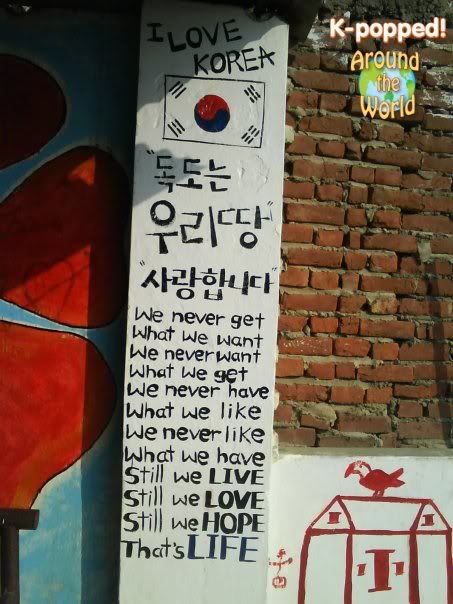 K-popped!
Around
the
World
I LOVE
KOREA
"독도는
우리땅"
"사랑합니다"
We never get
What we want
We never want
What we get
We never have
What we like
We never like
What we have
Still we LIVE
Still we LOVE
Still we HOPE
That's LIFE